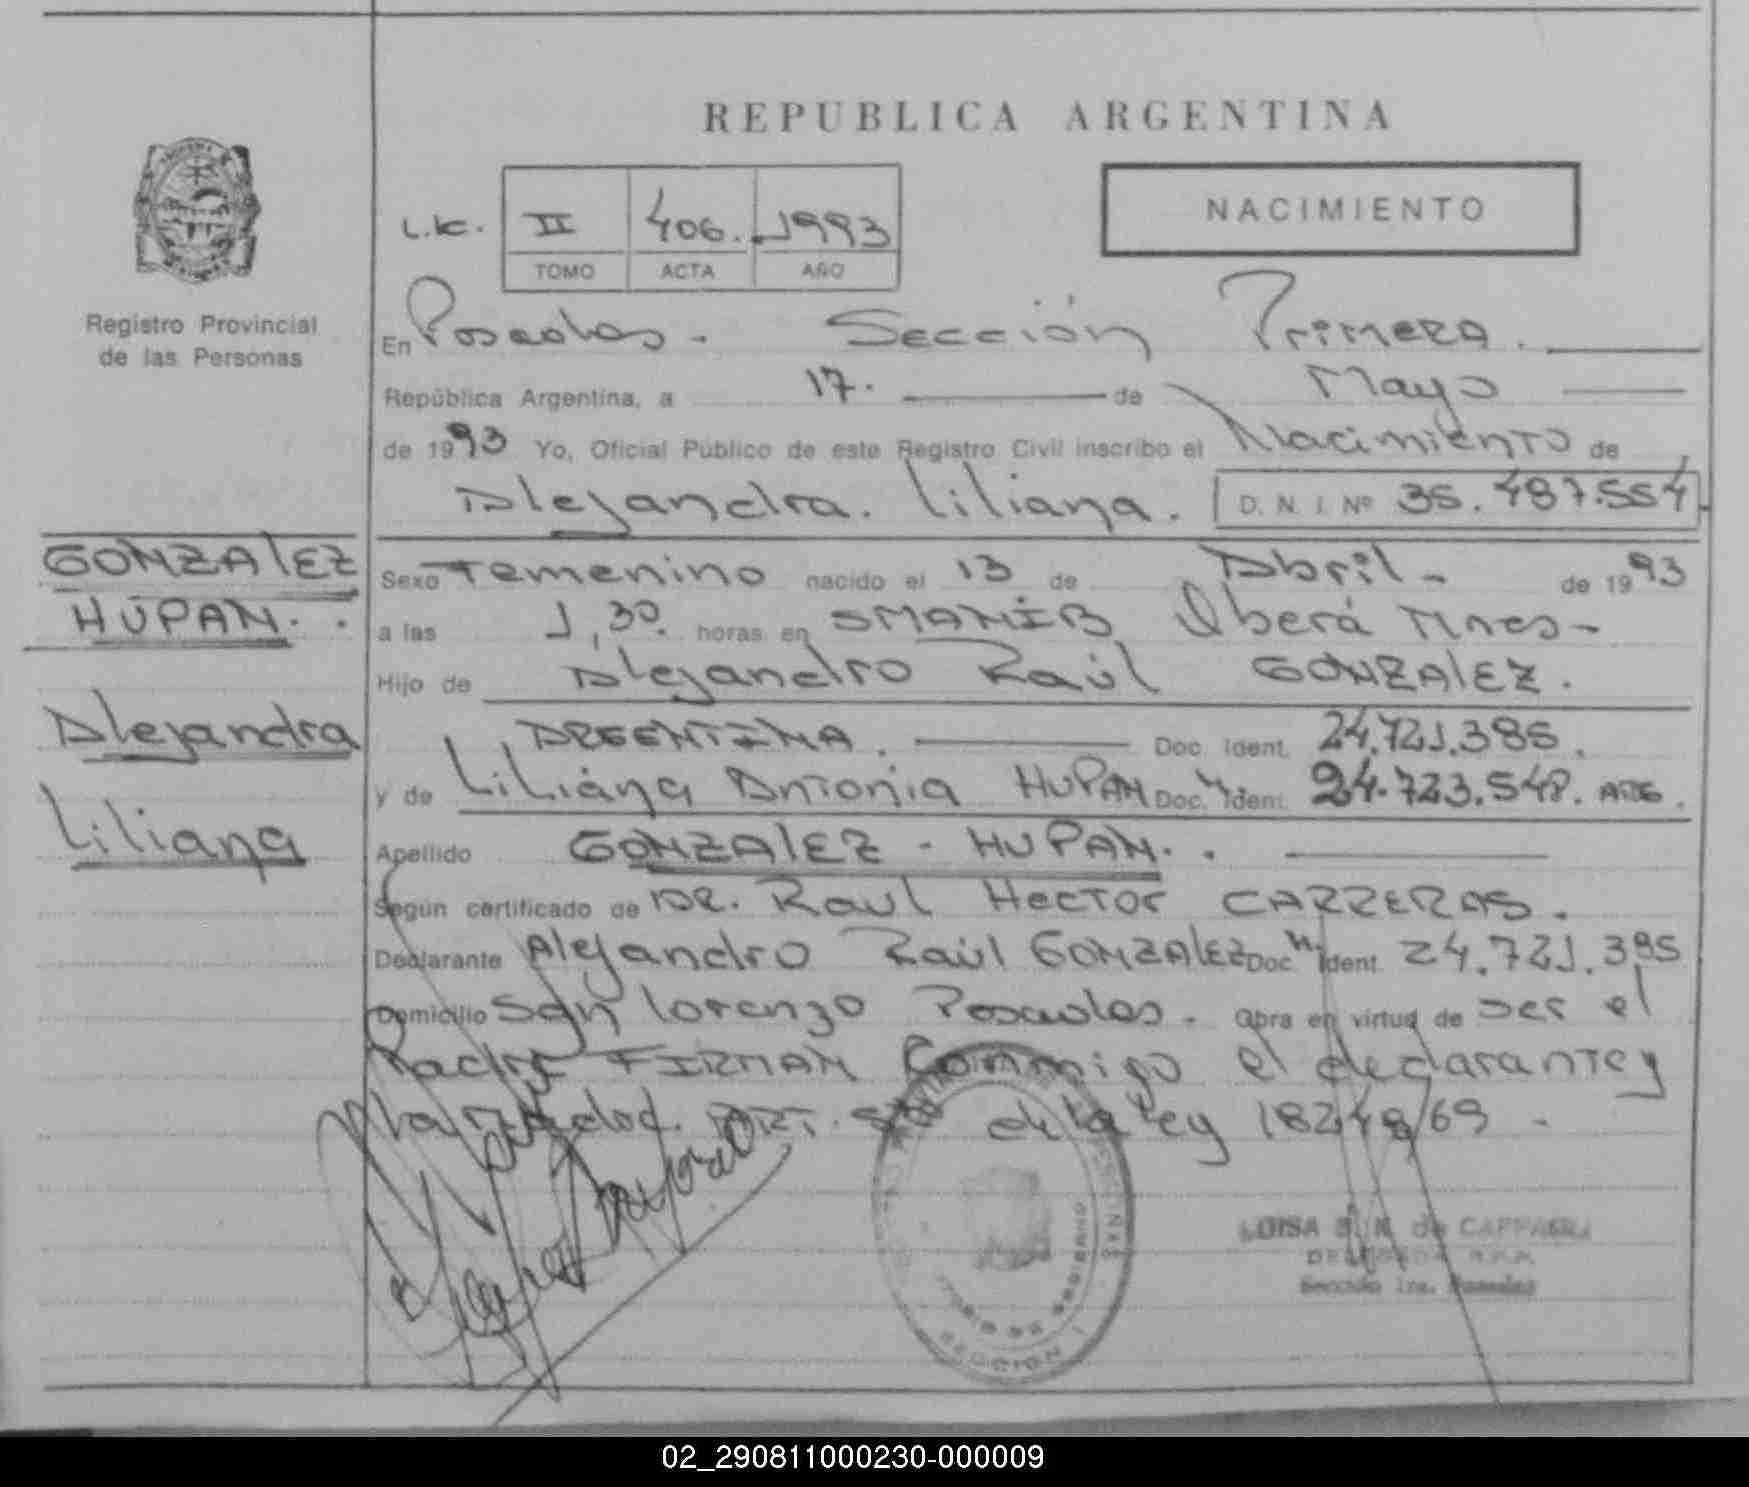 REPUBLICA ARGENTINA
L.C. II 406. 1993
TOMO ACTA AÑO
NACIMIENTO
Registro Provincial
de las Personas
En Posadas. Sección Primera.
República Argentina, a 17. de Mayo
de 1993 Yo, Oficial Público de este Registro Civil inscribo el Nacimiento de
Alejandra. Liliana. D. N. I. Nº 35.487.554
GONZAlEZ
HUPAN.
Alejandra
Liliana
Sexo Femenino nacido el 13 de Abril - de 1993
a las 1,30. horas en Oberá Mnes-
Hijo de Alejandro Raúl GONZAlEZ.
ARGENTINA. Doc. Ident. 24.721.385.
y de Liliana Antonia HUPAN Doc. Ident. 24.723.548. ARG.
Apellido GONZAlEZ - HUPAN.
Según certificado de DR. Raul Hector CARRERAS.
Declarante Alejandro Raúl GONZAlEZ Doc. Ident. 24.721.385
Domicilio San lorenzo Posadas. Obra en virtud de ser el
Padre FIRMAN Conmigo el declarante y
ART. de la ley 18248/69 -
LUISA de
DELEGADA R.P.P.
Sección 1ra. Posadas
SECCION 1
02_290811000230-000009